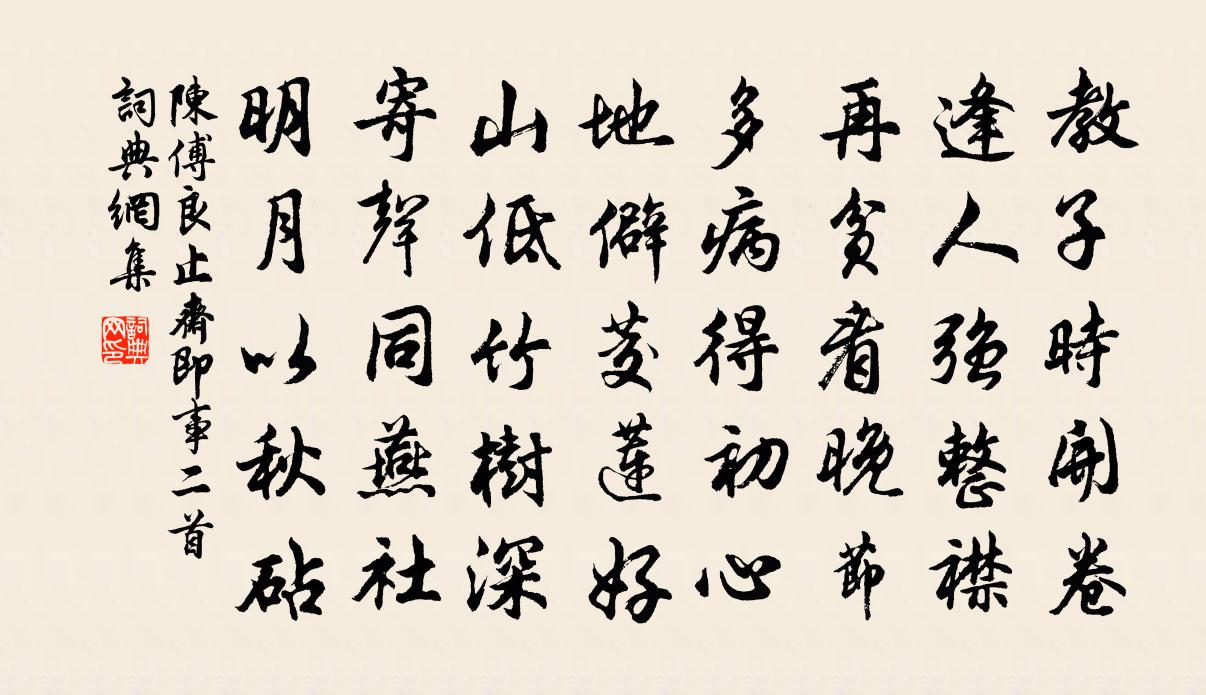 教子時開卷
逢人強整襟
再貧看晚節
多病得初心
地僻芰蓮好
山低竹樹深
寄聲同燕社
明月以秋砧
陳傅良止齋即事二首
詞典網集
詞典网印